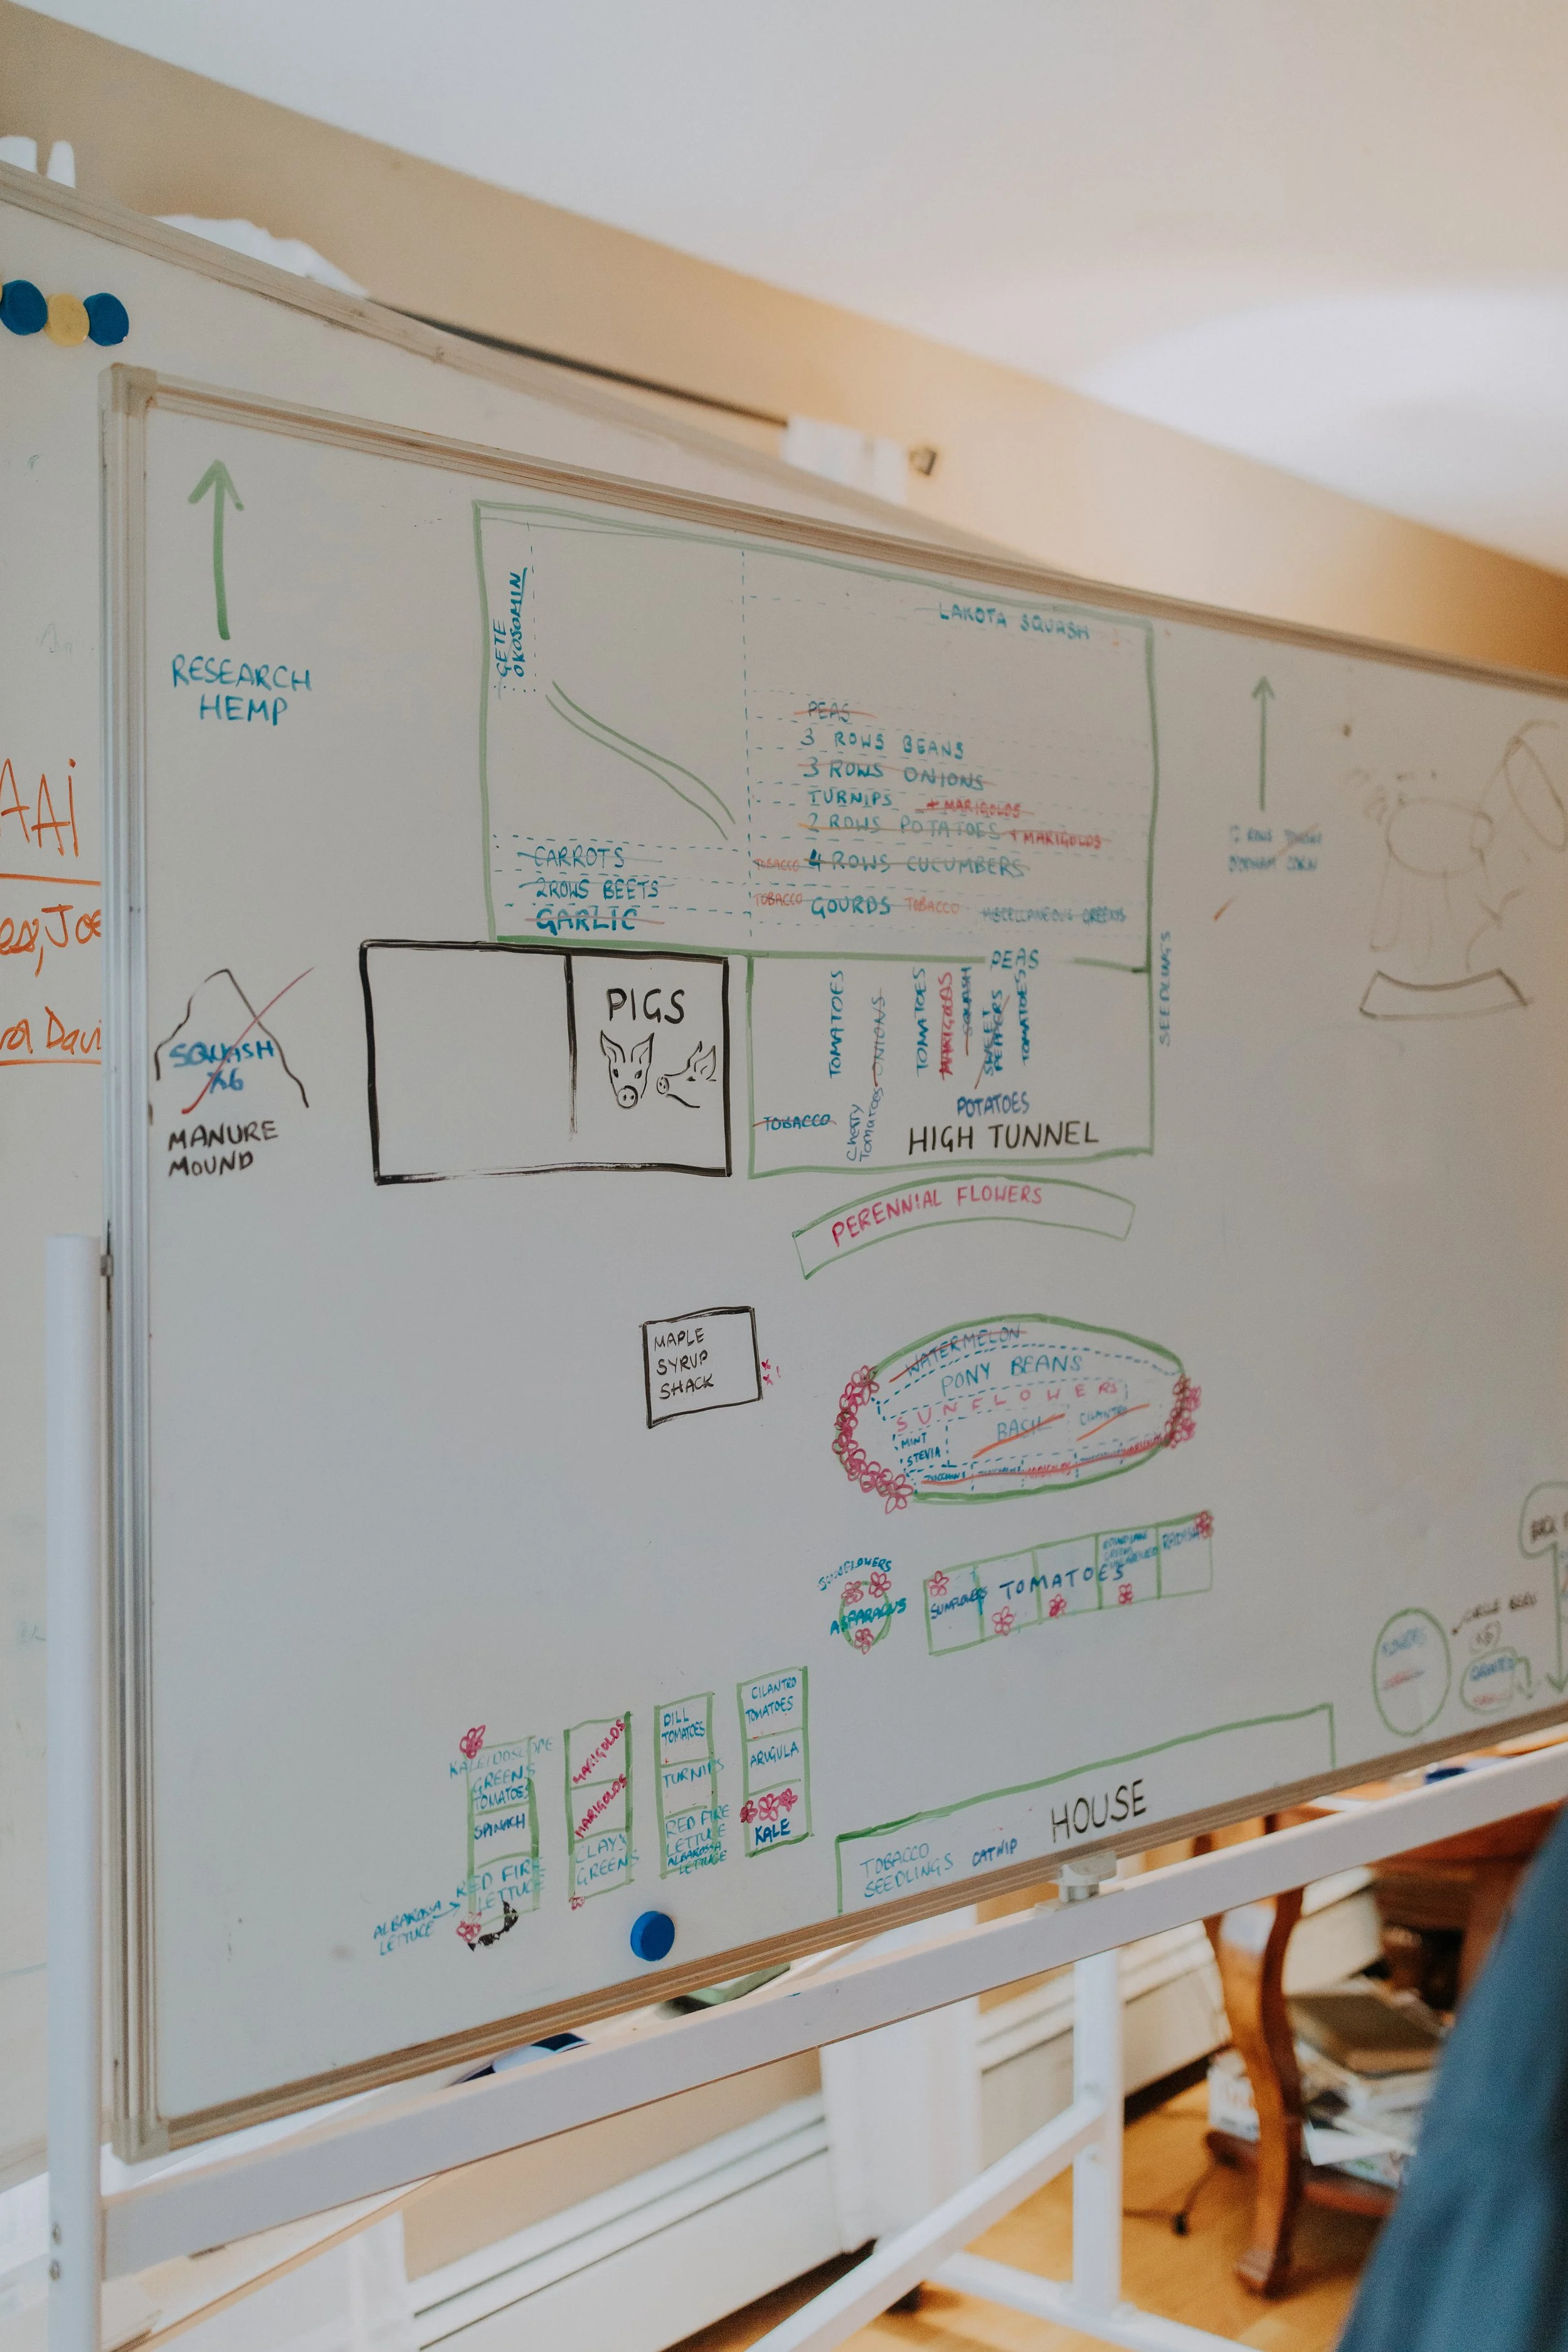 RESEARCH
HEMP
GETE
OKOSOMIN
LAKOTA SQUASH
PEAS
3 ROWS BEANS
3 ROWS ONIONS
TURNIPS + MARIGOLDS
2 ROWS POTATOES + MARIGOLDS
TOBACCO 4 ROWS CUCUMBERS
TOBACCO GOURDS TOBACCO MISCELLANEOUS GREENS
CARROTS
2 ROWS BEETS
GARLIC
SEEDLINGS
CORN
AAi
JOE
Davi
SQUASH
x6
MANURE
MOUND
PIGS
PEAS
TOMATOES
ONIONS
TOMATOES
MARIGOLDS
SQUASH
SWEET
PEPPERS
TOMATOES
TOBACCO
Cherry
Tomatoes
POTATOES
HIGH TUNNEL
PERENNIAL FLOWERS
MAPLE
SYRUP
SHACK
WATERMELON
PONY BEANS
SUNFLOWERS
MINT
STEVIA
BASIL
CILANTRO
SUNFLOWERS
ASPARAGUS
SUNFLOWERS
TOMATOES
RADISH
KALEIDOSCOPE
GREENS
TOMATOES
SPINACH
RED FIRE
LETTUCE
ALBAROSA
LETTUCE
MARIGOLDS
MARIGOLDS
CLAY
GREENS
DILL
TOMATOES
TURNIPS
RED FIRE
LETTUCE
ALBAROSA
LETTUCE
CILANTRO
TOMATOES
ARUGULA
KALE
HOUSE
TOBACCO
SEEDLINGS
CATNIP
FLOWERS